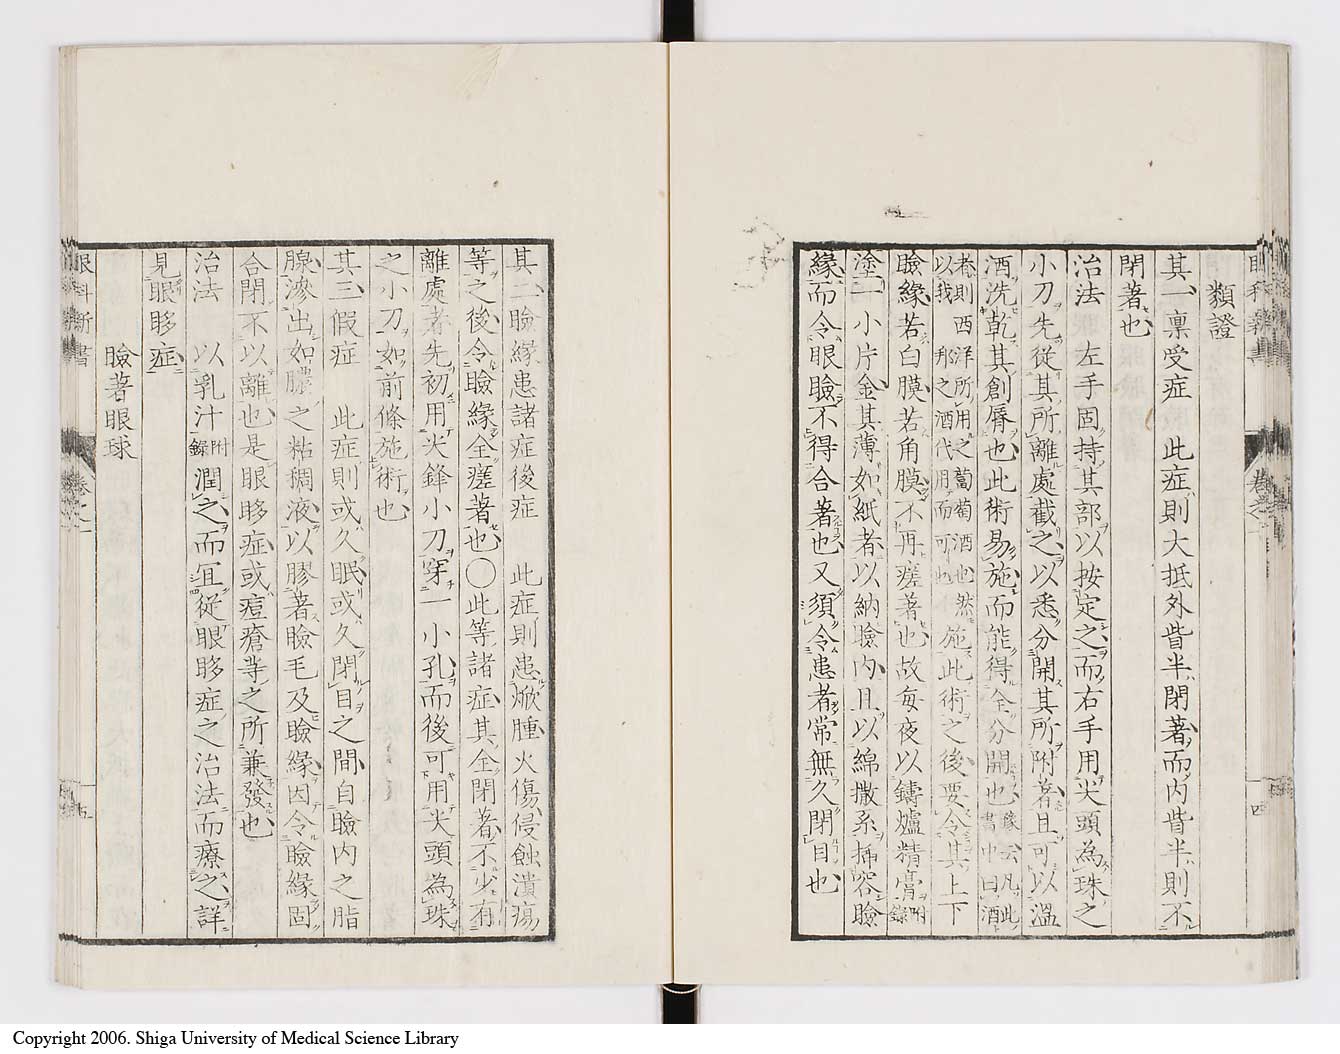 類證
其一稟受症 此症則大抵外眥半閉著而内眥半則不
閉著也
治法 左手固持其部以按定之而右手用尖頭為珠之
小刀先從其所離處截之以悉分開其所附著且可以溫
酒洗乾其創脣也此術易施而能得全分開也 豫云凡此書中曰酒
者則西洋所用之葡萄酒也然以我邦之酒代用而可也 施此術之後要令其上下
瞼緣若白膜若角膜不再痙著也故每夜以鑄爐精膏附錄
塗一小片金其薄如紙者以納瞼内且以綿撒系挿容瞼
緣而令眼瞼不得合著也又須令患者常無久閉目也
眼科新書
卷之一
四
其二瞼緣患諸症後症 此症則患焮腫火傷侵蝕潰瘍
等之後令瞼緣全痙著也○此等諸症其全閉著不少有
離處者先初用尖鋒小刀穿一小孔而後可用尖頭為珠
之小刀如前條施術也
其三假症 此症則或久眠或久閉目之間自瞼内之脂
腺滲出如膿之粘稠液以膠著瞼毛及瞼緣因令瞼緣固
合閉不以離也是眼眵症或痘瘡等之所兼發也
治法 以乳汁附錄潤之而宜從眼眵症之治法而療之詳
見眼眵症
瞼著眼球
眼科新書
卷之一
五
Copyright 2006. Shiga University of Medical Science Library